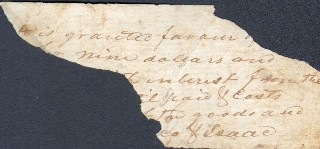 is granted favour
nine dollars and
interest from the
paid & costs
the goods and
of Isaac